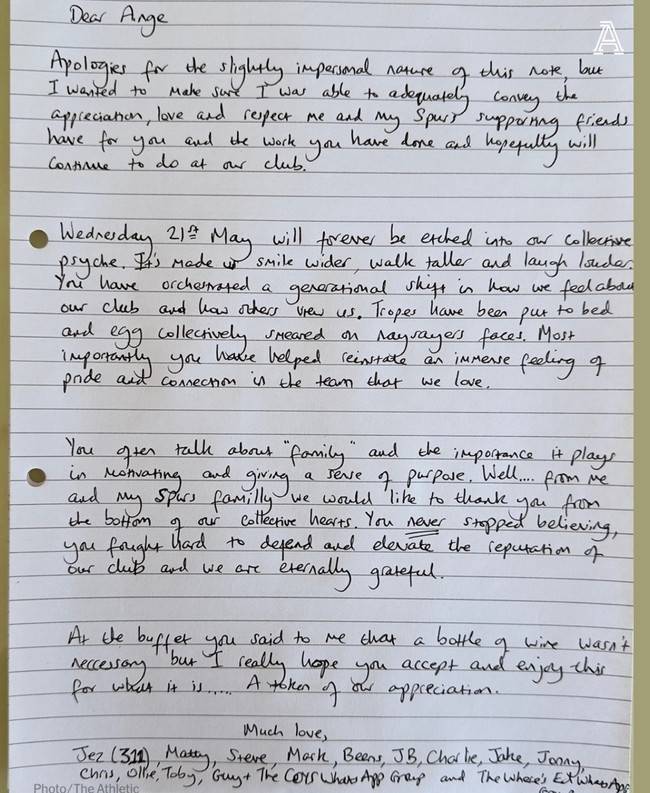 Dear Ange
Apologies for the slightly impersonal nature of this note, but
I wanted to make sure I was able to adequately convey the
appreciation, love and respect me and my Spurs supporting friends
have for you and the work you have done and hopefully will
continue to do at our club.
Wednesday 21st May will forever be etched into our collective
psyche. It's made us smile wider, walk taller and laugh louder.
You have orchestrated a generational shift in how we feel about
our club and how others view us. Tropes have been put to bed
and egg collectively smeared on naysayers faces. Most
importantly you have helped reinstate an immense feeling of
pride and connection in the team that we love.
You often talk about "family" and the importance it plays
in motivating and giving a sense of purpose. Well.... from me
and my Spurs familly we would like to thank you from
the bottom of our collective hearts. You never stopped believing,
you fought hard to defend and elevate the reputation of
our club and we are eternally grateful.
At the buffet you said to me that a bottle of wine wasn't
neccessary but I really hope you accept and enjoy this
for what it is..... A token of our appreciation.
Much love,
Jez (311), Matty, Steve, Mark, Beens, JB, Charlie, Jake, Jonny,
Chris, Ollie, Toby, Guy + The COYS WhatsApp Group and The Where's Ext WhatsApp
Photo/The Athletic